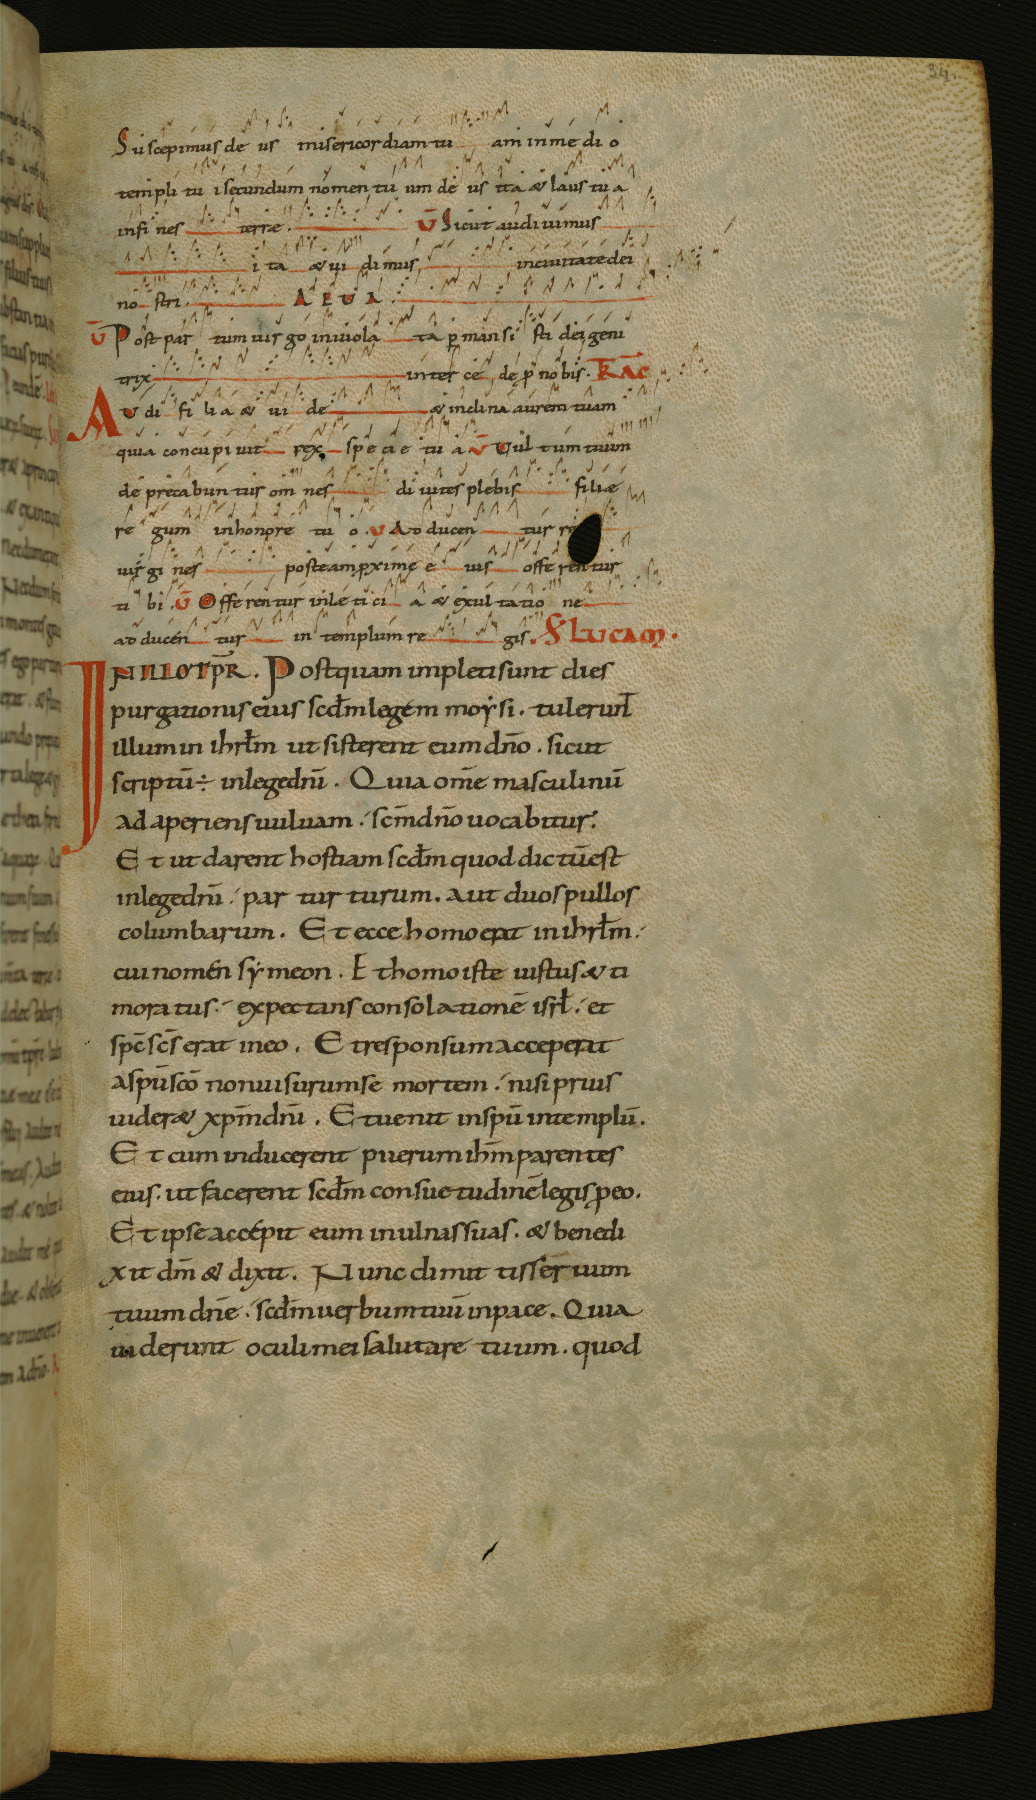 34.
Suscepimus de us misericordiam tu am in me di o
templi tu i secundum nomen tu um de us ita & laus tu a
in fi nes terrae. V̄ Sicut audi ui mus
i ta & ui di mus, in ciuitate dei
no stri. A E U A.
V̄ Post par tum uir go inuiola ta ꝑ man si sti dei geni
trix inter ce de ꝓ no bis. TRAC
Au di fi li a & ui de & inclina aurem tuam
quia concupi uit rex, spe ci e tu a V̄ Uul tum tuum
de preca bun tur om nes di uites plebis filiae
re gum in honore tu o. V Ad ducen tur re
uir gi nes post eam ꝓxime e ius offe rentur
ti bi. V̄ Offe rentur in le ti ci a & exul ta tio ne
ad ducen tur in templum re gis. S̄ LUCAM.
IN ILLO TP̄R. Postquam impleti sunt dies
purgationis eius scd̄m legem moysi. tulerunt
illum in ihrl̄m ut sisterent eum dn̄o. sicut
scriptū ÷ in lege dnī. Quia om̄e masculinū
ad aperiens uuluam. sc̄m dn̄o uocabitur.
Et ut darent hostiam scd̄m quod dictū est
in lege dnī. par tur turum. aut duos pullos
columbarum. Et ecce homo erat in ihrl̄m.
cui nomen symeon. Et homo iste iustus & ti
moratus. expectans consolationē isrl̄. et
spc̄ sc̄s erat in eo. Et responsum acceperat
a spū sc̄o non uisurum se mortem. nisi prius
uider& xpm̄ dnī. Et uenit in spū in templū.
Et cum inducerent puerum ihm̄ parentes
eius. ut facerent scd̄m consuetudinē legis ꝑ eo.
Et ipse accepit eum in ulnas suas. & benedi
xit dm̄ & dixit. Nunc dimittis seruum
tuum dn̄e. scd̄m uerbum tuū in pace. Quia
uiderunt oculi mei salutare tuum. quod